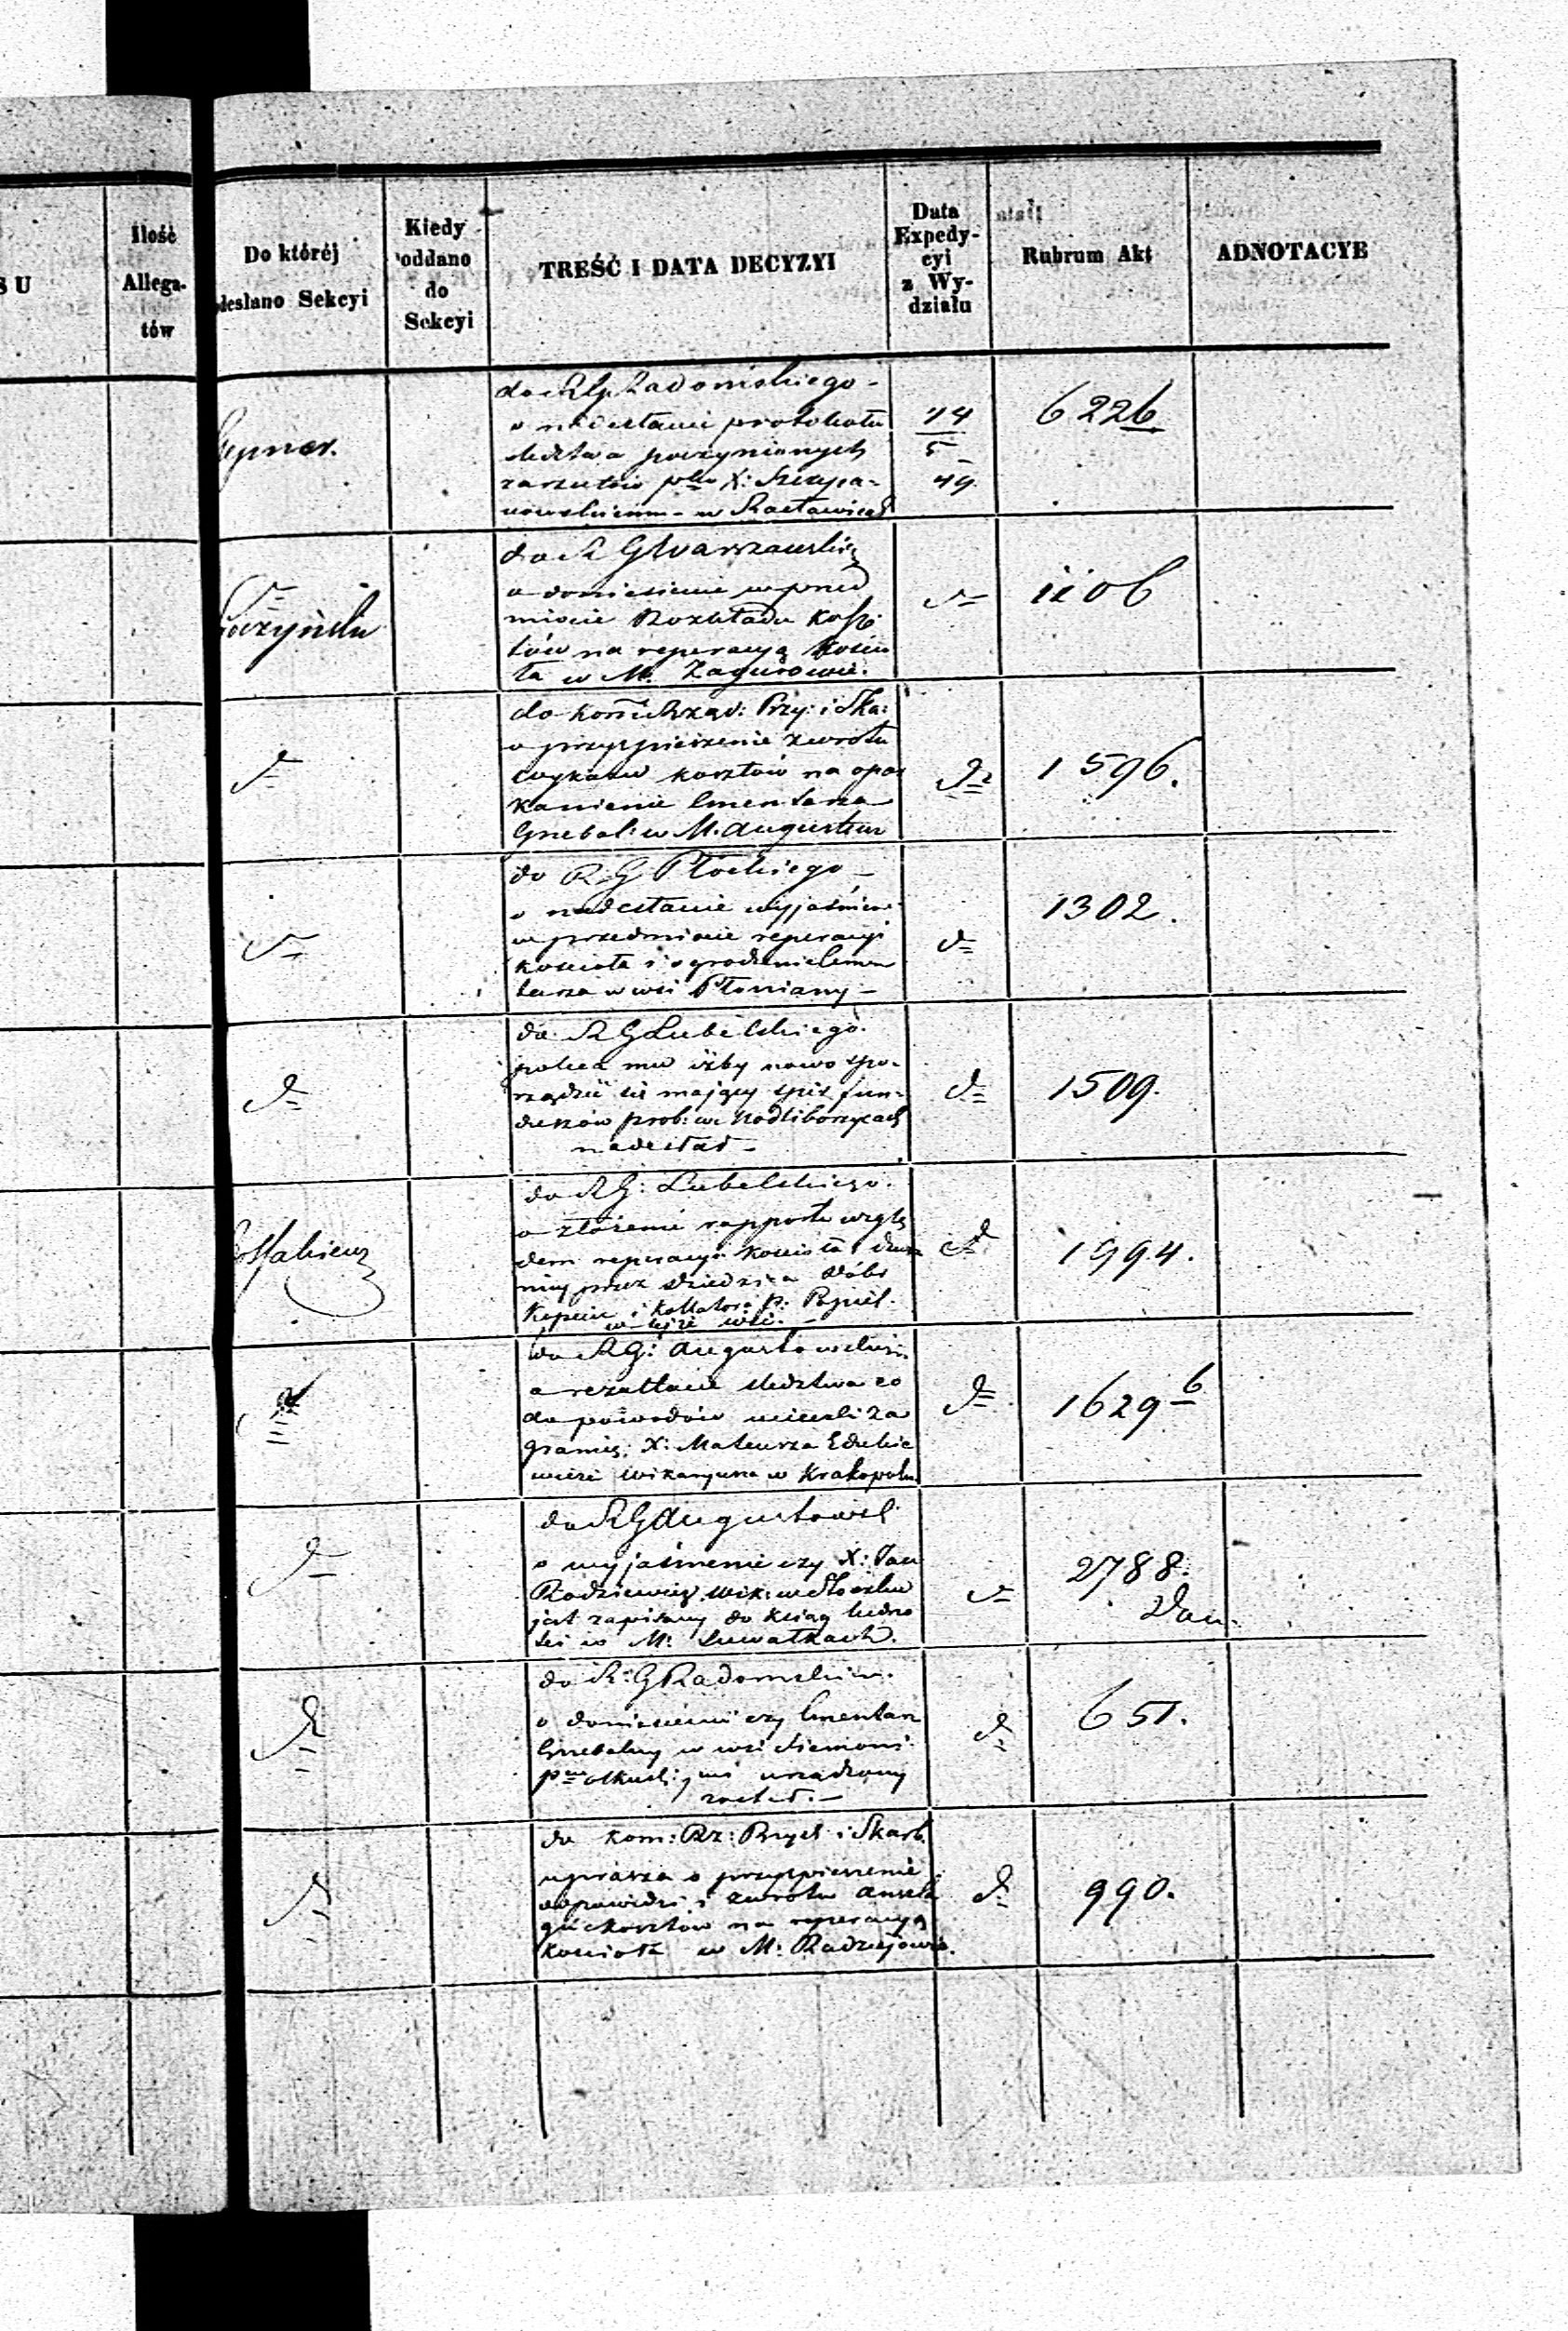 S U
Ilość
Allega-
tów
Do któréj
odesłano Sekcyi
Kiedy
oddano
do
Sekcyi
TREŚĆ I DATA DECYZYI
Data
Expedy-
cyi
z Wy-
działu
Rubrum Akt
ADNOTACYE
do R G Radomskiego -
o nadesłanie protokołu
śledztwa poczynionych
zarzutów X: Szczepa-
nowskiemu - w Racławicach
14
5
49
6226
do R G Warszawskie
o doniesienie w przed
miocie Rozkładu Kosz
tów na reperacyą Kościo
ła w M. Zagurowie.
1106
do Kom Rząd: Przy: i Ska:
o przyspieszenie zwrotu
wykazu kosztów na opar
kanienie Cmentarza
Grzebal: w M. Augustow
1596.
do R G Płockiego -
o nadesłanie wyjaśnien
w przedmiocie reperacyi
kościoła i ogrodzenie Cmen
tarza w wsi Płoniany -
1302.
do R G Lubelskiego
poleca mu iżby nowo spo-
rządzić się mający spis fun-
duszów prob: w Modliborzycach
nadesłał -
1509.
do R G: Lubelskiego.
o złożenie rapportu wzglę
dem reperacyi Kościoła
przez dziedzica dóbr
i Kollatora P: Popiel.
w tejże wsi. -
1994.
do R G: Augustowskie
o rezultacie śledztwa co
do powodów ucieczki za
granicę X: Mateusza
Wikaryusza w Krakopolu
1629 b
do R G Augustowsk
o wyjaśnienie czy X: Jan
Radziewicz wik: w
jest zapisany do Ksiąg ludno
ści w M: Suwałkach.
2788.
do R: G Radomskie.
o doniesienie czy Cmentarz
Grzebalny w wsi Siemoni
Olkusk: urządzony
został. -
651.
do Kom: Rz: Przych i Skarb.
uprasza o przyspieszenie
odpowiedzi i zwrotu anszla
gu kosztów na reperacyą
kościoła w M: Radziejowie.
990.